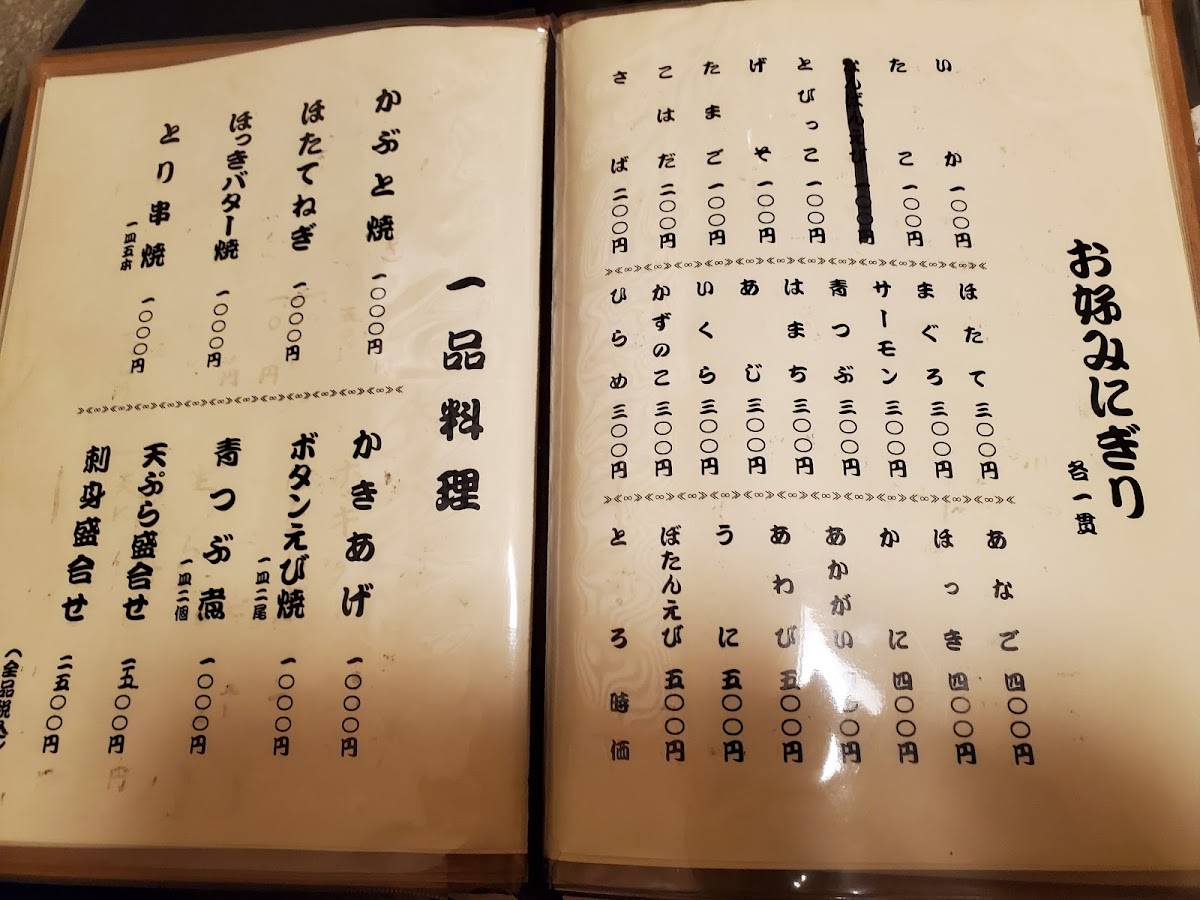 お好みにぎり
各一貫
いか 一〇〇円
たこ 一〇〇円
とびっこ 一〇〇円
げそ 一〇〇円
たまご 一〇〇円
こはだ 二〇〇円
さば 二〇〇円
ほたて 三〇〇円
まぐろ 三〇〇円
サーモン 三〇〇円
青つぶ 三〇〇円
はまち 三〇〇円
あじ 三〇〇円
いくら 三〇〇円
かずのこ 三〇〇円
ひらめ 三〇〇円
あなご 四〇〇円
ほっき 四〇〇円
かに 四〇〇円
あかがい 〇〇円
あわび 五〇〇円
うに 五〇〇円
ぼたんえび 五〇〇円
とろ 時価
一品料理
かぶと焼 一〇〇〇円
ほたてねぎ 一〇〇〇円
ほっきバター焼 一〇〇〇円
とり串焼 一〇〇〇円
一皿五本
かきあげ 一〇〇〇円
ボタンえび焼 一〇〇〇円
一皿二尾
青つぶ煮 一〇〇〇円
一皿二個
天ぷら盛合せ 一五〇〇円
刺身盛合せ 二五〇〇円
(全品税込)